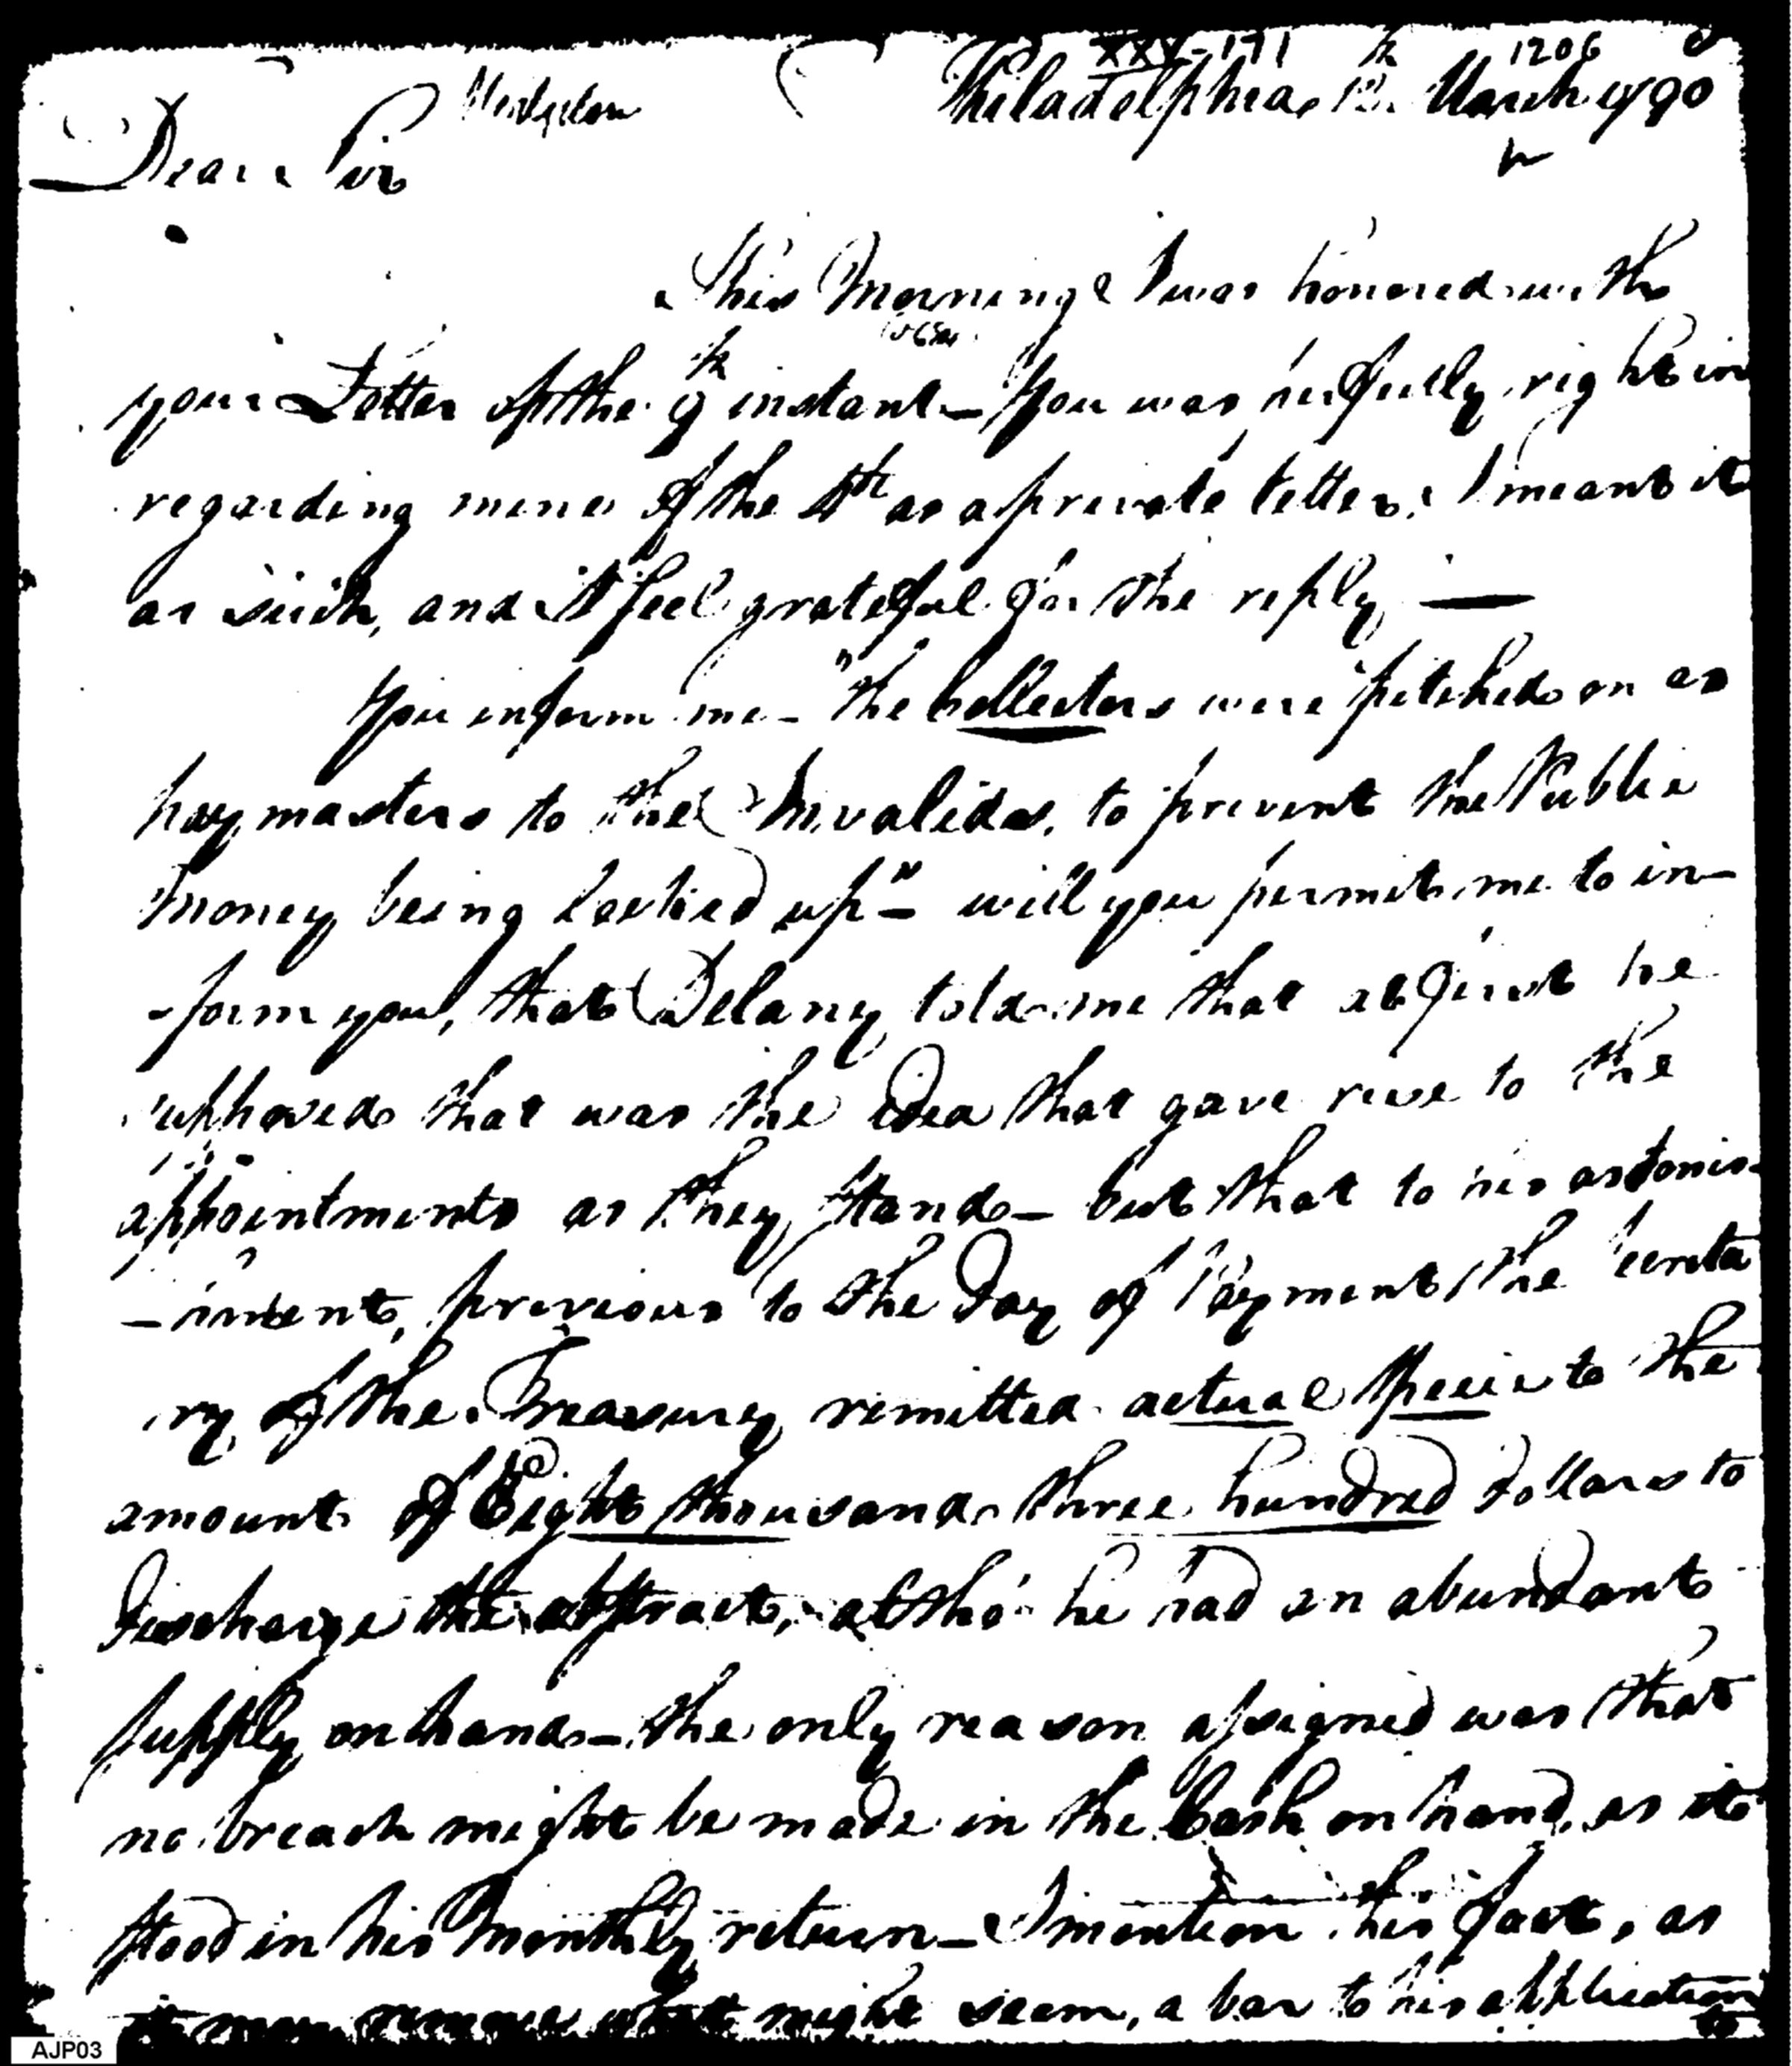 XXV-171 1206
Philadelphia 12th March 1790
Dear Sir
This Morning I was honored with
your Letter of the 9th instant – You was perfectly right in
regarding mine of the 4th as a private letter, I meant it
as such, and I feel grateful for the reply —
You inform me – "the Collectors were pitched on as
paymasters to the Invalids, to prevent the Public
money being locked up" – will you permit me to in-
-form you, that Delany told me that at first he
supposed that was the idea that gave rise to the
appointments as they stand – but that to his astonis-
-hment, previous to the Day of Payment, the Secreta
ry of the Treasury remitted actual specie to the
amount of Eight thousand three hundred Dollars to
Discharge the abstract, altho' he had an abundant
supply on hand – the only reason assigned was that
no breach might be made in the Cash on hand, as it
stood in his Monthly return – I mention this fact, as
it may remove what might seem, a bar to his application
to
AJP03